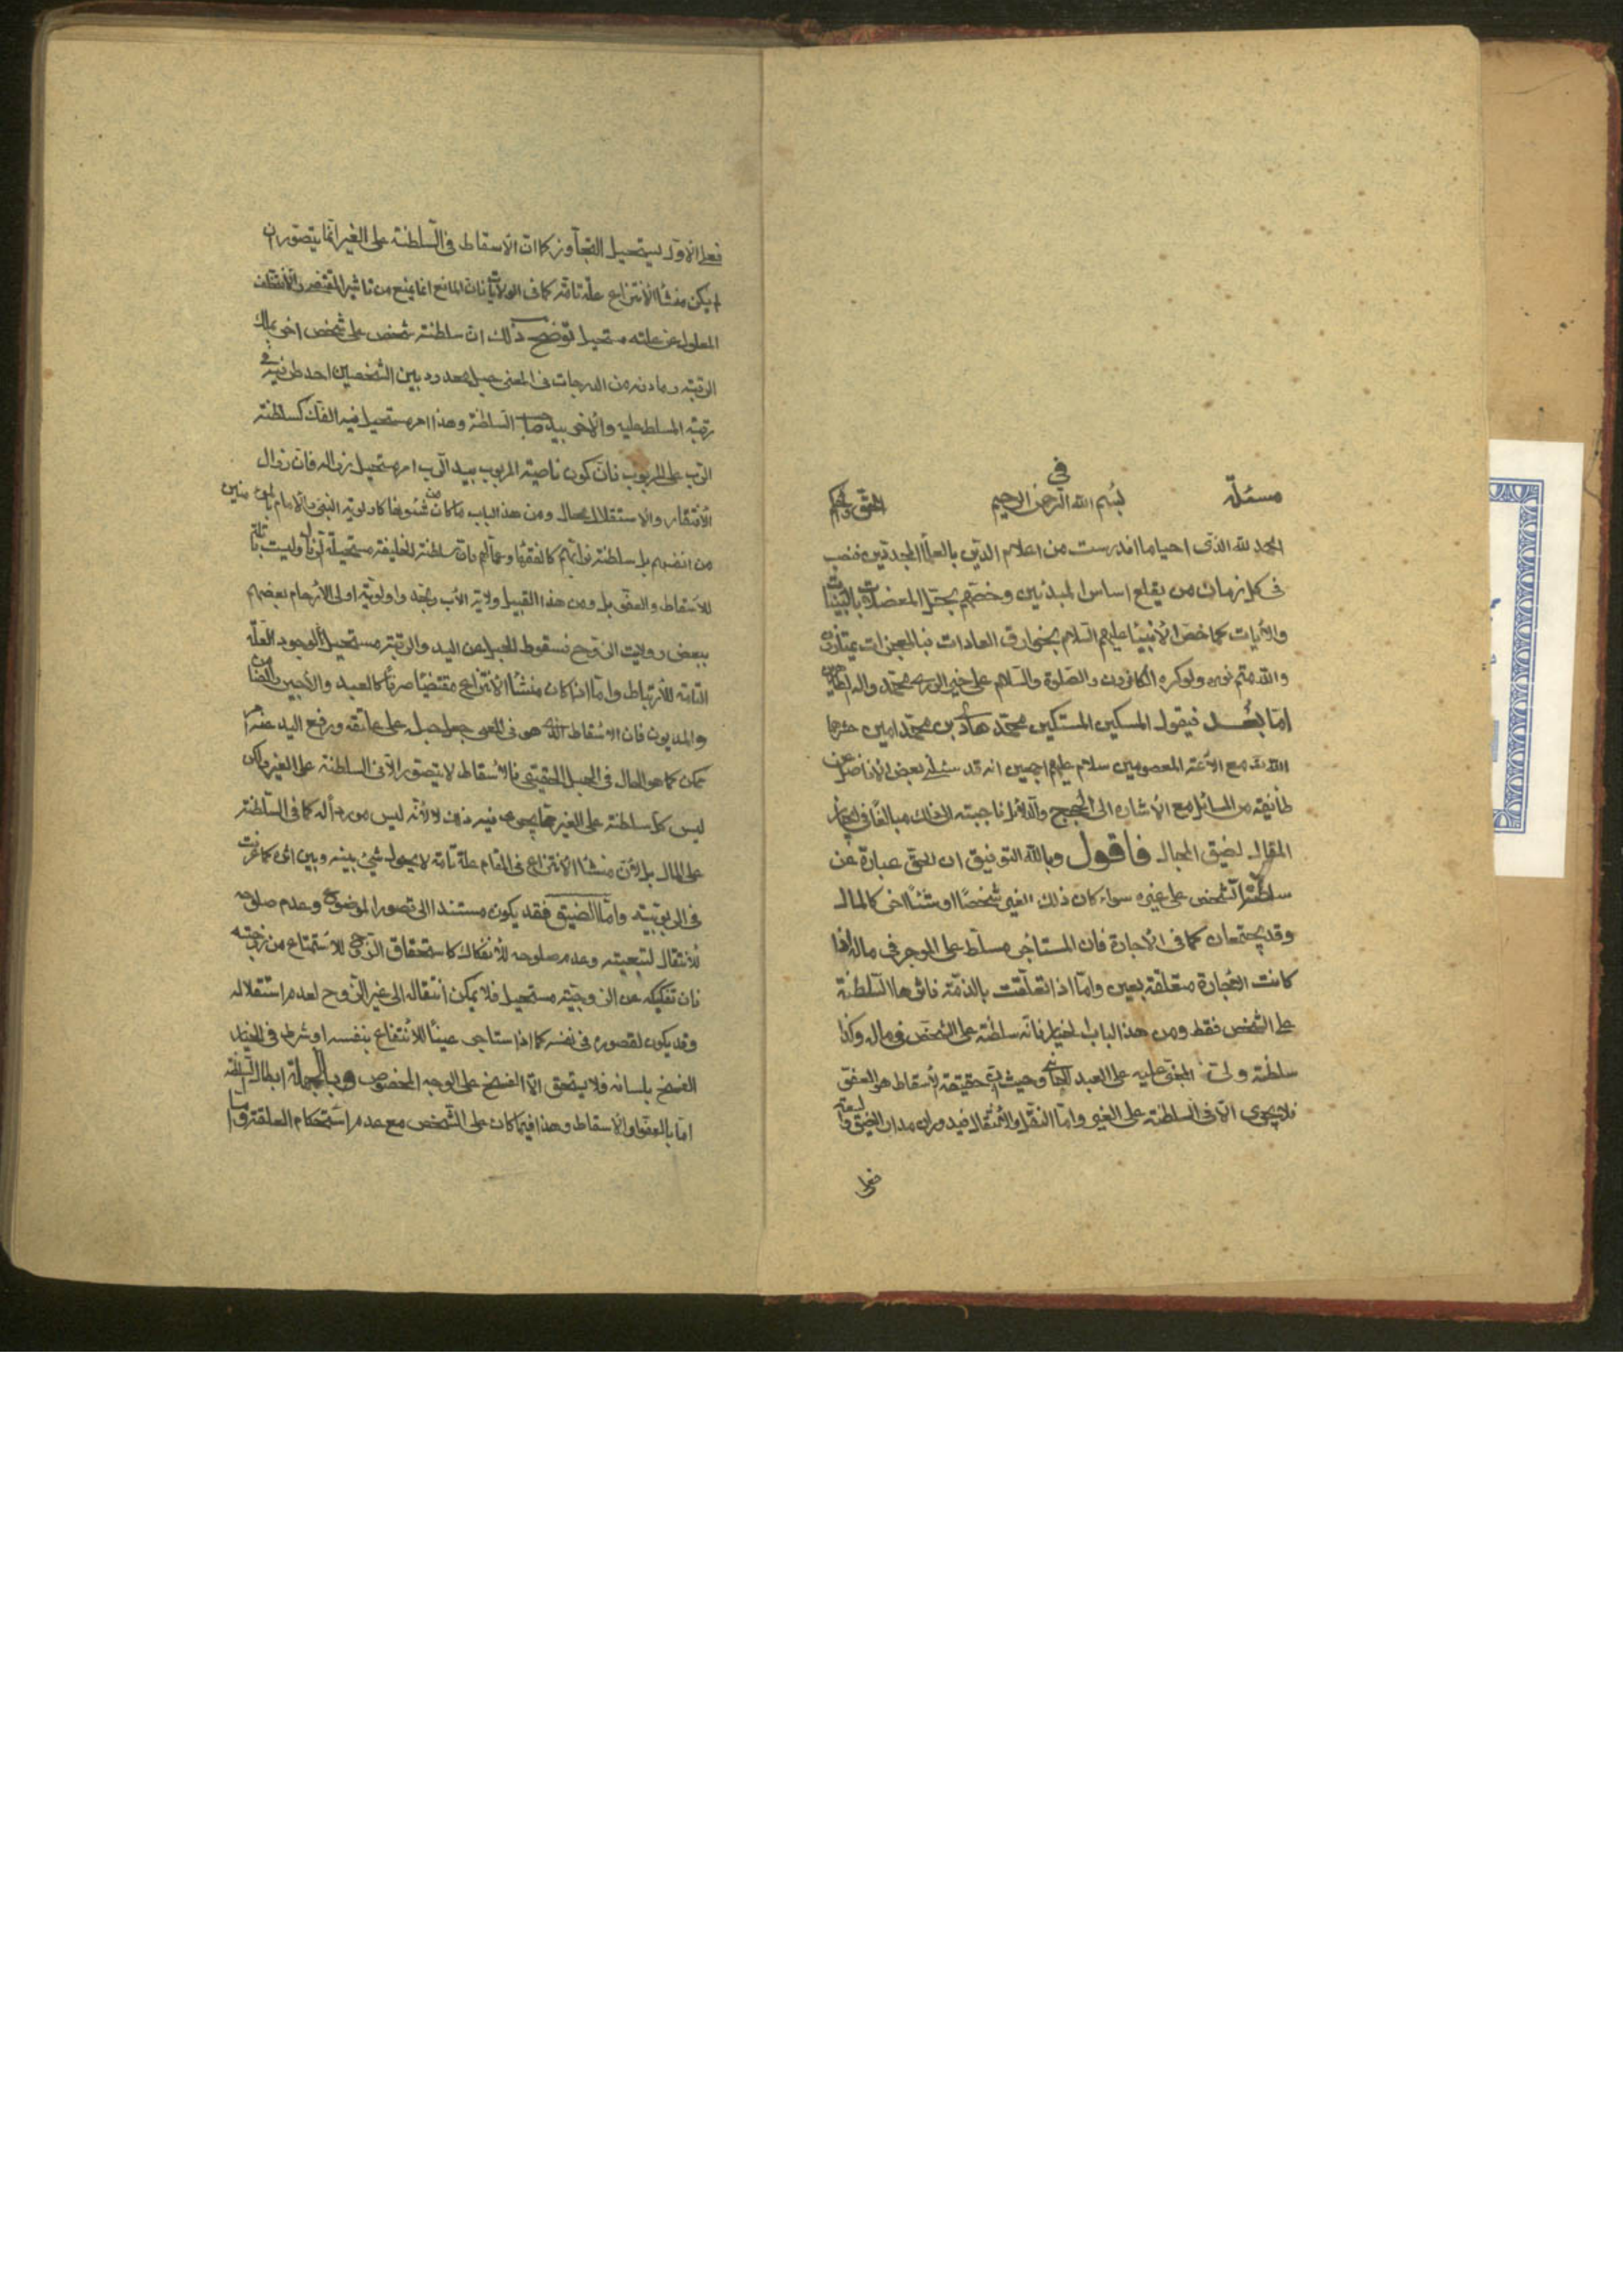 مسئلة في الحق والحكم
بسم الله الرحمن الرحيم
الحمد لله الذى احيا ما اندرست من اعلام الدين بالعلماء المجددين فنصب
فى كل زمان من يقلع اساس المبدعين وخصهم بحل المعضلات بالبينات
والآيات كما خص الأنبياء عليهم السلام بخوارق العادات فبالمعجزات يمتازون
والله متم نوره ولو كره الكافرون والصلوة والسلام على خير الورى محمد واله الطاهرين
اما بعد فيقول المسكين المستكين محمد هادى بن محمد امين حشرهما
الله مع الأئمة المعصومين سلام عليهم اجمعين انه قد سئلنى بعض الأفاضل عن
طائفة من المسائل مع الأشارة الى الحجج والدلائل فاجبته الى ذلك مبالغا فى ايجاز
المقال لضيق المجال فاقول وبالله التوفيق ان الحق عبارة عن
سلطنة الشخص على غيره سواء كان ذلك الغير شخصا او شيئا اخر كالمال
وقد يجتمعان كما فى الأجارة فان المستاجر مسلط على الموجر فى ماله اذا
كانت الاجارة متعلقة بعين واما اذا تعلقت بالذمة فاثرها السلطنة
على الشخص فقط ومن هذا الباب الخيار فانه سلطنة على الشخص فى ماله وكذا
سلطنة ولى المجنى عليه على العبد الجانى وحيث ان حقيقة الأسقاط هو العفو
فلا يجرى الا فى السلطنة على الغير واما النقل والأنتقال فيدوران مدار الضيق والسعة
فعلى
فعلى الاول يستحيل التجاوز كما ان الاسقاط فى السلطنة على الغير انما يتصور ان
لم يكن منشأ الأنتزاع علة تامة كما فى الولايات فان المانع انما يمنع من تاثير المقتضى
المعلول عن علته مستحيل توضيح ذلك ان سلطنة شخص على شخص اخر بملك
الرقبة وما دونه من الدرجات فى المعنى حبل ممدود بين الشخصين احد طرفيه فى
رقبة المسلط عليه والأخر بيد صاحب السلطنة وهذا امر مستحيل فيه الفك كسلطنة
الرب على المربوب فان كون ناصية المربوب بيد الرب امر مستحيل زواله فان زوال
الأفتقار والاستقلال محال ومن هذا الباب ما كان من شئونها كاولوية النبى والامام بالمؤمنين
من انفسهم بل سلطنة نوابهم كالفقهاء وعمالهم فان سلطنة الخليفة مستحيلة الزوال وليست قابلة
للاسقاط والعفو بل ومن هذا القبيل ولاية الأب والجد واولوية اولى الأرحام بعضهم
ببعض وولايت الزوج فسقوط الحبل عن اليد والرقبة مستحيل لوجود العلة
التامة للأرتباط واما اذا كان منشأ الأنتزاع مقتضيا صرفا كالعبد والأجير والضامن
والمديون فان الاسقاط الذى هو فى المعنى جعل حبله على عاتقه ورفع اليد عنه امر
ممكن كما هو الحال فى الحبل الحقيقى فالأسقاط لا يتصور الا فى السلطنة على الغير ولكن
ليس كل سلطنة على الغير مما يجرى فيه ذلك لا لأنه ليس من رأسه كما فى السلطنة
على المال بل لأن منشأ الأنتزاع فى المقام علة تامة لا يحول شئ بينه وبين اثره كما عرفت
فى الربوبية واما الضيق فقد يكون مستندا الى قصور الموضوع وعدم صلوحه
للأنتقال لتبعيته وعدم صلوحه للأنفكاك كاستحقاق الزوج للأستمتاع من زوجته
فان تفكيكه عن الزوجية مستحيل فلا يمكن انتقاله الى غير الزوج لعدم استقلاله
وقد يكون لقصوره فى نفسه كما اذا استاجر عينا للأنتفاع بنفسه او شرط فى الخيار
الفسخ بلسانه فلا يستحق الا الفسخ على الوجه المخصوص وبالجملة ابطال السلطنة
اما بالعفو او الاسقاط وهذا فيما كان على الشخص مع عدم استحكام العلقة